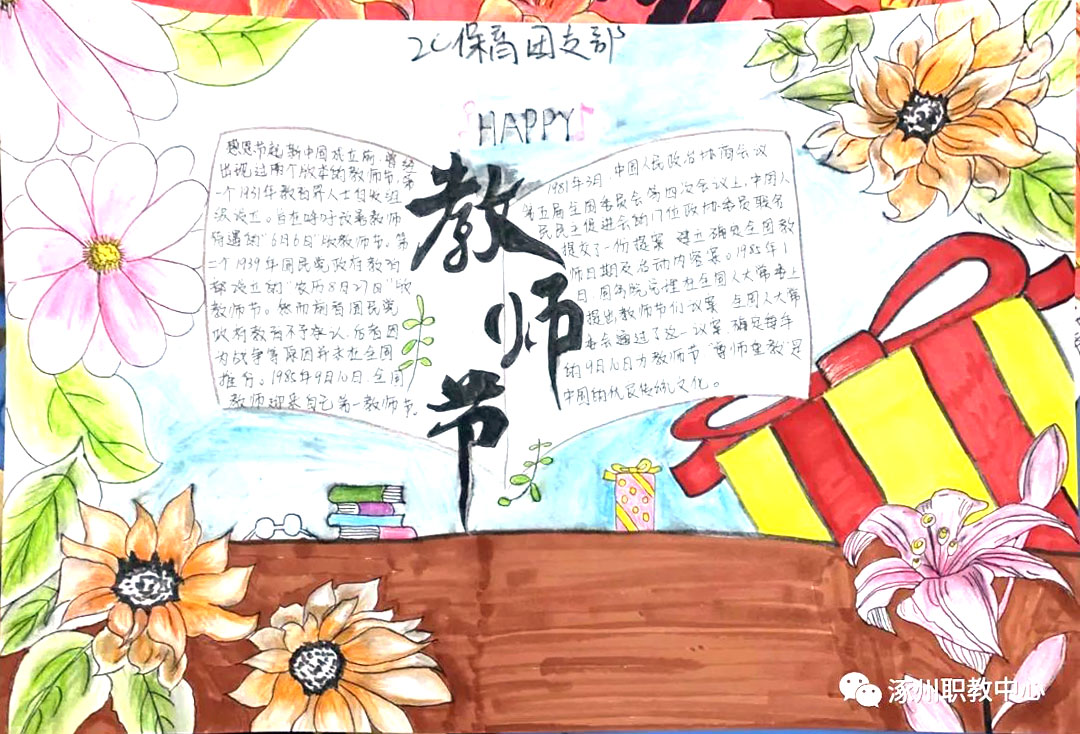 20保育团支部
HAPPY
教师节
感恩节起新中国成立前,曾经
出现过两个版本的教师节,第
一个1931年教育界人士自发组
织设立。旨在呼吁改善教师
待遇的“6月6日”版教师节。第
二个1939年国民党政府教育
部设立的“农历8月27日”版
教师节。然而前者国民党
政府教育不予承认,后者因
为战争等原因并未在全国
推行。1985年9月10日,全国
教师迎来自己第一教师节。
1981年3月,中国人民政治协商会议
第五届全国委员会第四次会议上,中国人
民民主促进会的17位政协委员联名
提交了一份提案 建立确定全国教
师日期及活动内容案。1985年1
月,国务院总理在全国人大常委上
提出教师节们议案 全国人大常
委会通过了这一议案,确定每年
纳9月10日为教师节“尊师重教”是
中国纳优良传统文化。
涿州职教中心